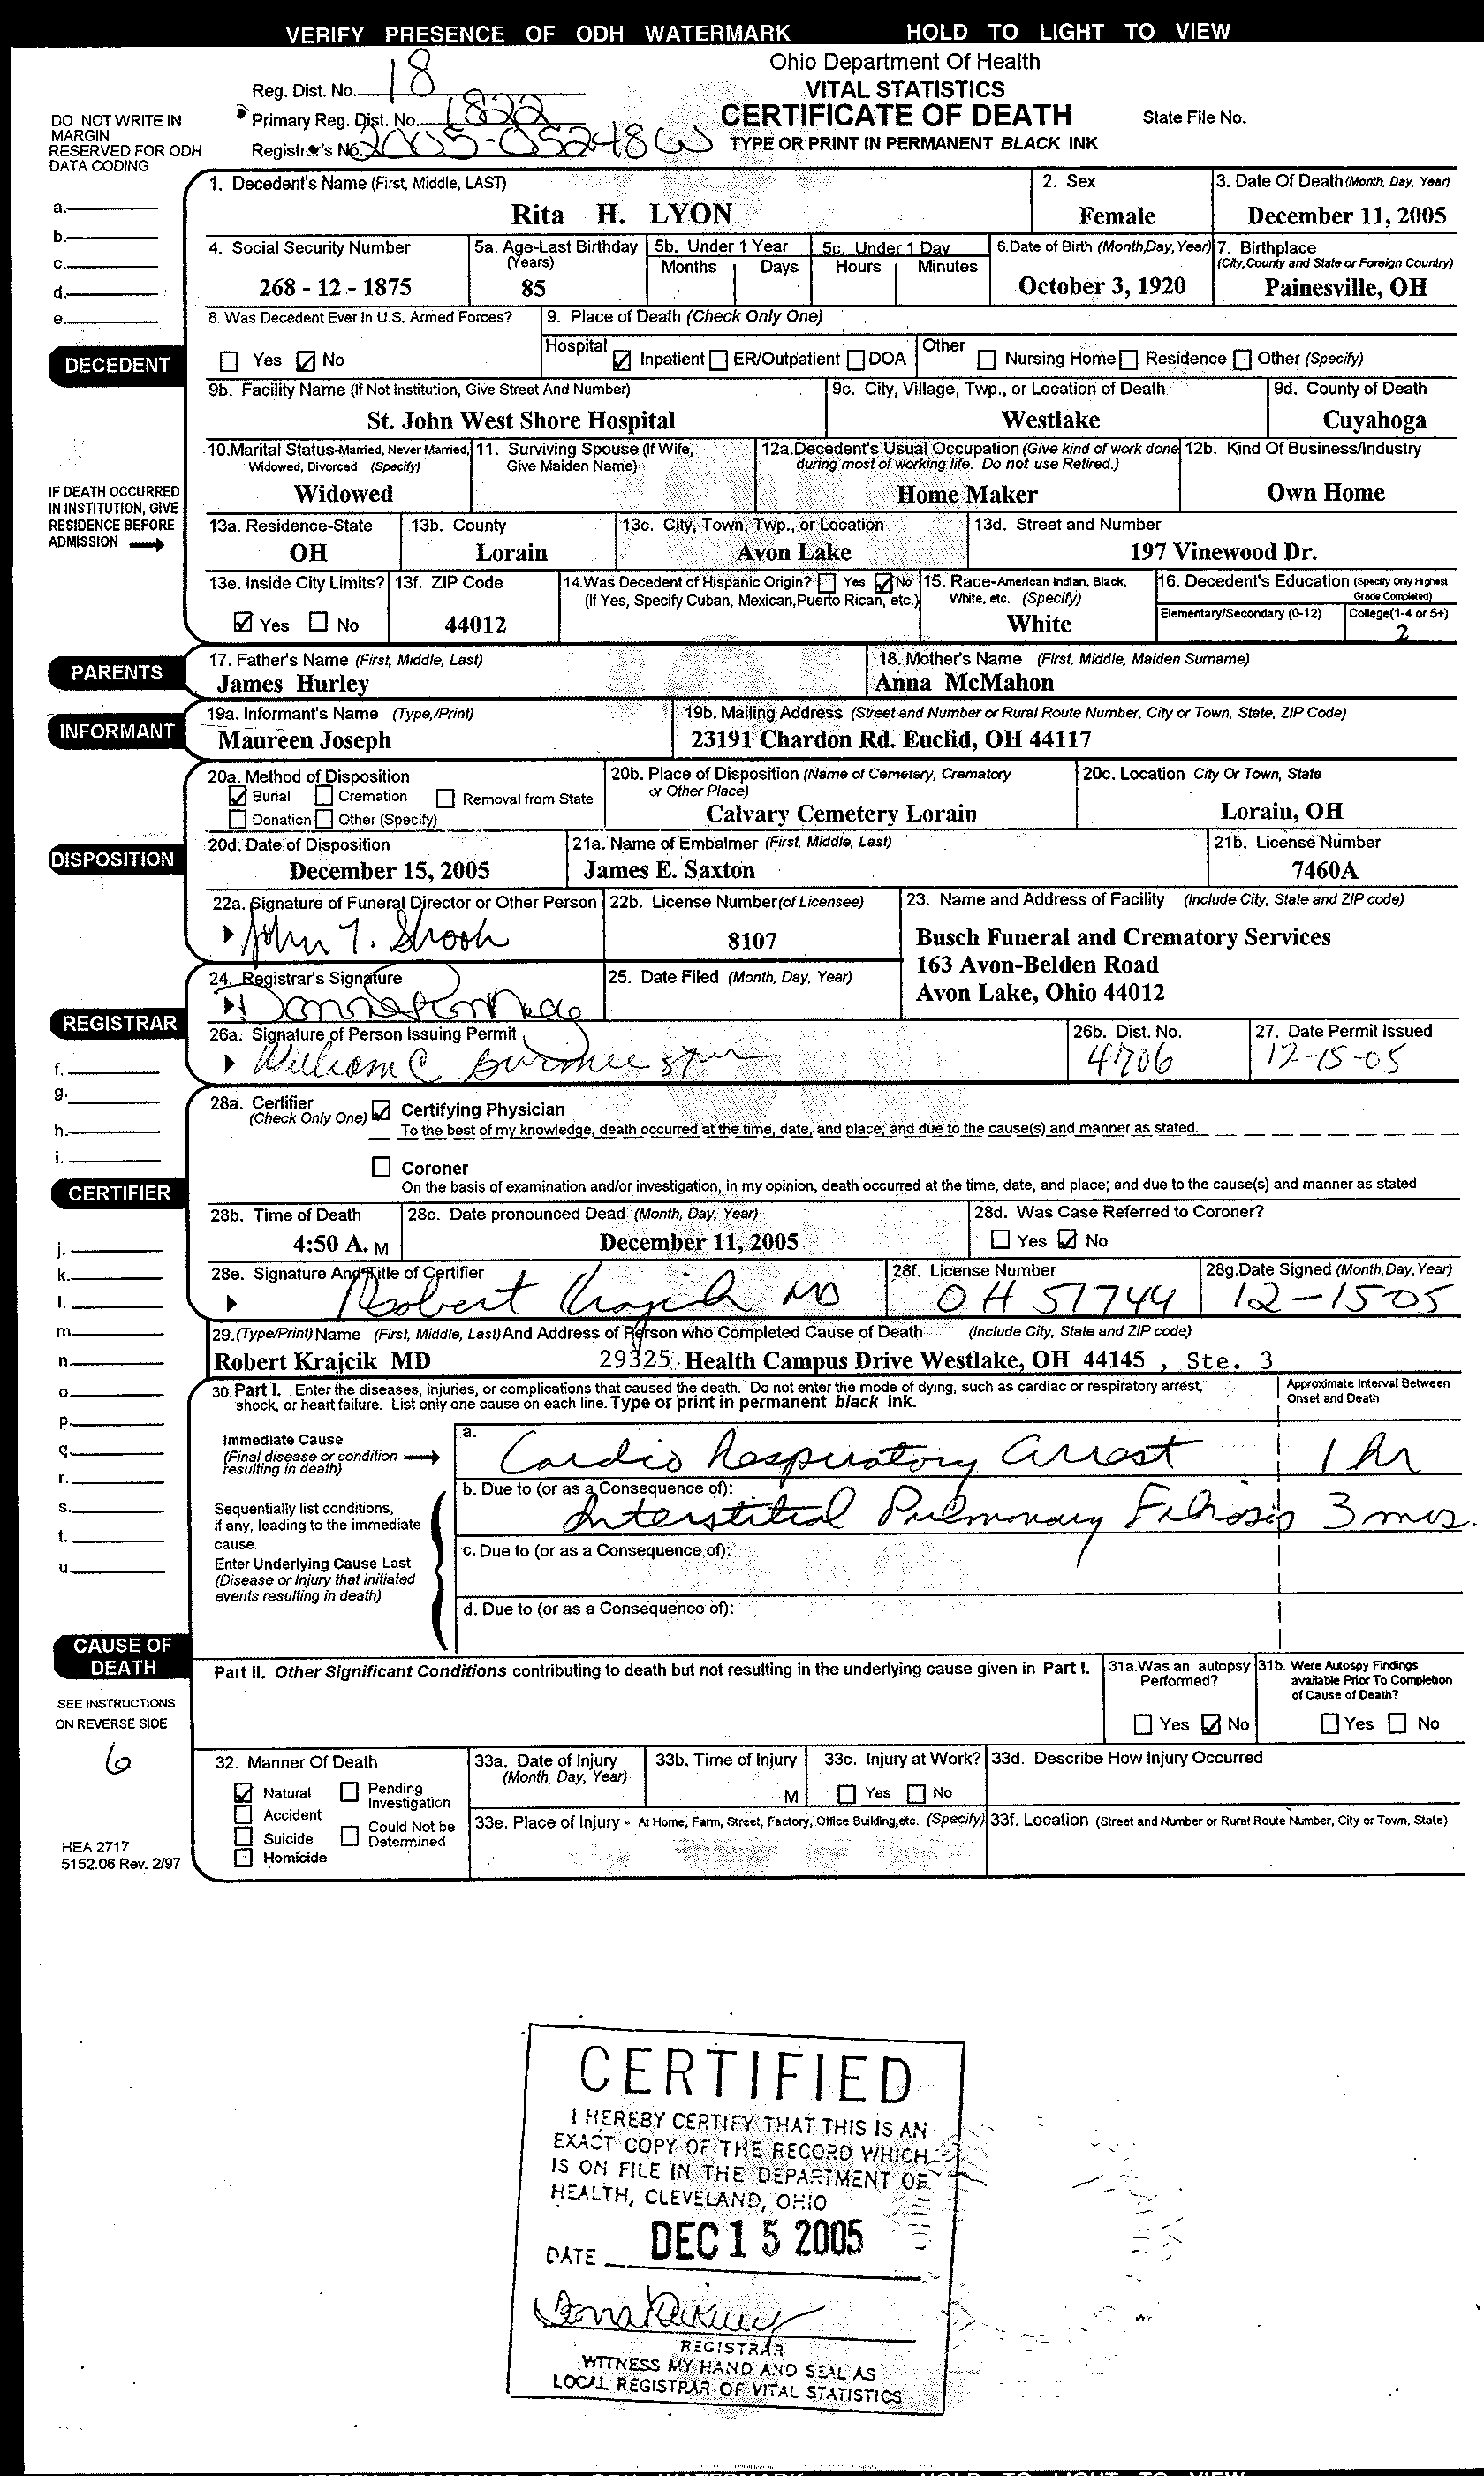 VERIFY PRESENCE OF ODH WATERMARK HOLD TO LIGHT TO VIEW
Ohio Department Of Health
VITAL STATISTICS
CERTIFICATE OF DEATH
TYPE OR PRINT IN PERMANENT BLACK INK
State File No.
Reg. Dist. No. 18
Primary Reg. Dist. No. 1822
Registrar's No. 2005-05248
DO NOT WRITE IN
MARGIN
RESERVED FOR ODH
DATA CODING
1. Decedent's Name (First, Middle, LAST)
Rita H. LYON
2. Sex
Female
3. Date Of Death (Month, Day, Year)
December 11, 2005
4. Social Security Number
268 - 12 - 1875
5a. Age-Last Birthday
(Years)
85
5b. Under 1 Year
Months Days
5c. Under 1 Day
Hours Minutes
6.Date of Birth (Month,Day, Year)
October 3, 1920
7. Birthplace
(City,County and State or Foreign Country)
Painesville, OH
a.
b.
c.
d.
e.
DECEDENT
8. Was Decedent Ever In U.S. Armed Forces?
Yes No
9. Place of Death (Check Only One)
Hospital Inpatient ER/Outpatient DOA Other Nursing Home Residence Other (Specify)
9b. Facility Name (If Not Institution, Give Street And Number)
St. John West Shore Hospital
9c. City, Village, Twp., or Location of Death
Westlake
9d. County of Death
Cuyahoga
10.Marital Status-Married, Never Married,
Widowed, Divorced (Specify)
Widowed
11. Surviving Spouse (If Wife,
Give Maiden Name)
12a.Decedent's Usual Occupation (Give kind of work done
during most of working life. Do not use Retired.)
Home Maker
12b. Kind Of Business/Industry
Own Home
IF DEATH OCCURRED
IN INSTITUTION, GIVE
RESIDENCE BEFORE
ADMISSION
13a. Residence-State
OH
13b. County
Lorain
13c. City, Town, Twp., or Location
Avon Lake
13d. Street and Number
197 Vinewood Dr.
13e. Inside City Limits?
Yes No
13f. ZIP Code
44012
14.Was Decedent of Hispanic Origin? Yes No
(If Yes, Specify Cuban, Mexican,Puerto Rican, etc.)
15. Race-American Indian, Black,
White, etc. (Specify)
White
16. Decedent's Education (Specify Only Highest
Grade Completed)
Elementary/Secondary (0-12) College(1-4 or 5+)
2
PARENTS
17. Father's Name (First, Middle, Last)
James Hurley
18. Mother's Name (First, Middle, Maiden Surname)
Anna McMahon
INFORMANT
19a. Informant's Name (Type,/Print)
Maureen Joseph
19b. Mailing Address (Street and Number or Rural Route Number, City or Town, State, ZIP Code)
23191 Chardon Rd. Euclid, OH 44117
DISPOSITION
20a. Method of Disposition
Burial Cremation Removal from State
Donation Other (Specify)
20b. Place of Disposition (Name of Cemetery, Crematory
or Other Place)
Calvary Cemetery Lorain
20c. Location City Or Town, State
Lorain, OH
20d. Date of Disposition
December 15, 2005
21a. Name of Embalmer (First, Middle, Last)
James E. Saxton
21b. License Number
7460A
22a. Signature of Funeral Director or Other Person
John T.
22b. License Number(of Licensee)
8107
23. Name and Address of Facility (Include City, State and ZIP code)
Busch Funeral and Crematory Services
163 Avon-Belden Road
Avon Lake, Ohio 44012
REGISTRAR
24. Registrar's Signature
25. Date Filed (Month, Day, Year)
26a. Signature of Person Issuing Permit
William C
26b. Dist. No.
4706
27. Date Permit Issued
12-15-05
f.
g.
h.
i.
CERTIFIER
28a. Certifier
(Check Only One)
Certifying Physician
To the best of my knowledge, death occurred at the time, date, and place; and due to the cause(s) and manner as stated.
Coroner
On the basis of examination and/or investigation, in my opinion, death occurred at the time, date, and place; and due to the cause(s) and manner as stated
28b. Time of Death
4:50 A. M
28c. Date pronounced Dead (Month, Day, Year)
December 11, 2005
28d. Was Case Referred to Coroner?
Yes No
28e. Signature And Title of Certifier
Robert Krajcik MD
28f. License Number
OH 51744
28g.Date Signed (Month,Day,Year)
12-15-05
29.(Type/Print) Name (First, Middle, Last) And Address of Person who Completed Cause of Death (Include City, State and ZIP code)
Robert Krajcik MD 29325 Health Campus Drive Westlake, OH 44145 , Ste. 3
j.
k.
l.
m.
n.
o.
p.
q.
r.
s.
t.
u.
30. Part I. Enter the diseases, injuries, or complications that caused the death. Do not enter the mode of dying, such as cardiac or respiratory arrest,
shock, or heart failure. List only one cause on each line. Type or print in permanent black ink.
Approximate Interval Between
Onset and Death
Immediate Cause
(Final disease or condition
resulting in death)
a.
Cardio Respiratory Arrest 1 hr
Sequentially list conditions,
if any, leading to the immediate
cause.
Enter Underlying Cause Last
(Disease or Injury that initiated
events resulting in death)
b. Due to (or as a Consequence of):
Interstitial Pulmonary Fibrosis 3 mos.
c. Due to (or as a Consequence of):
d. Due to (or as a Consequence of):
CAUSE OF
DEATH
SEE INSTRUCTIONS
ON REVERSE SIDE
6
Part II. Other Significant Conditions contributing to death but not resulting in the underlying cause given in Part I.
31a.Was an autopsy
Performed?
Yes No
31b. Were Autospy Findings
available Prior To Completion
of Cause of Death?
Yes No
32. Manner Of Death
Natural Pending
Investigation
Accident
Suicide Could Not be
Determined
Homicide
33a. Date of Injury
(Month, Day, Year)
33b. Time of Injury
M
33c. Injury at Work?
Yes No
33d. Describe How Injury Occurred
33e. Place of Injury - At Home, Farm, Street, Factory, Office Building,etc. (Specify)
33f. Location (Street and Number or Rural Route Number, City or Town, State)
HEA 2717
5152.06 Rev. 2/97
CERTIFIED
I HEREBY CERTIFY THAT THIS IS AN
EXACT COPY OF THE RECORD WHICH
IS ON FILE IN THE DEPARTMENT OF
HEALTH, CLEVELAND, OHIO
DATE DEC 15 2005
REGISTRAR
WITNESS MY HAND AND SEAL AS
LOCAL REGISTRAR OF VITAL STATISTICS